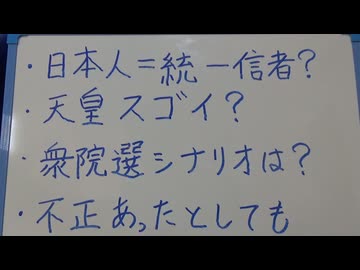 ・日本人=統一信者?
・天皇スゴイ?
・衆院選シナリオは?
・不正あったとしても